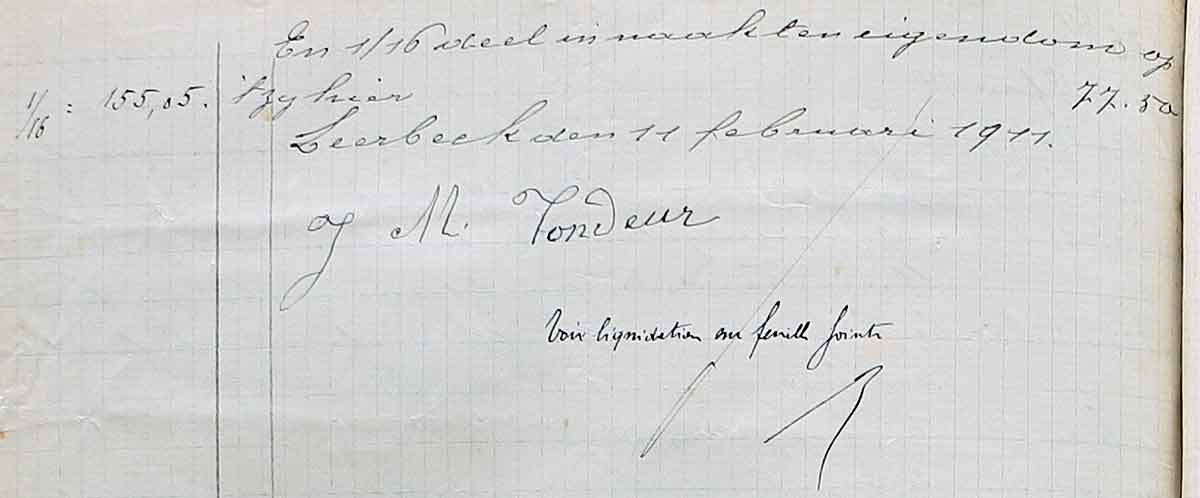 En 1/16 deel in naakten eigendom op
1/16 : 155,05. 't zy hier 77.50
Leerbeek den 11 februari 1911.
J M. Tondeur
Voir liquidation sur feuille jointe